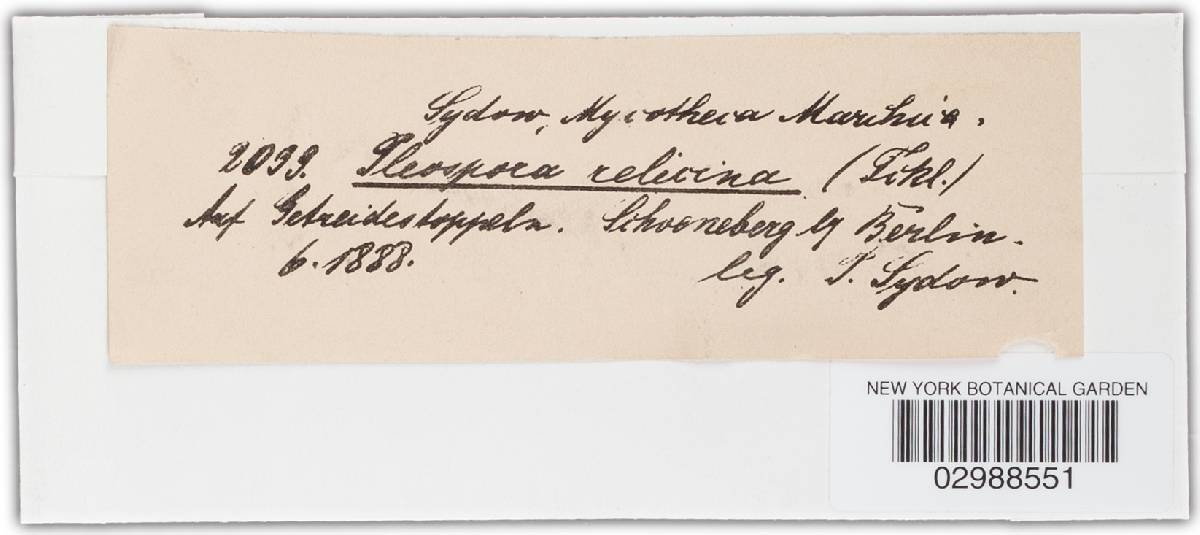 Sydow, Mycotheca Marchica.
2039. Pleospora relicina (Fckl.)
Auf Getreidestoppeln. Schoeneberg by Berlin.
6. 1888. leg. P. Sydow.
NEW YORK BOTANICAL GARDEN
02988551